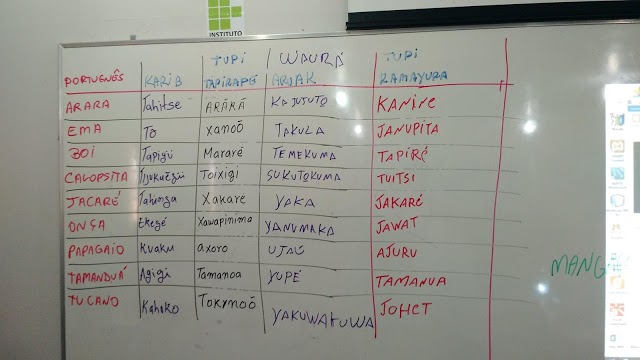 INSTITUTO
TUPI WAURÁ TUPI
PORTUGUÊS KARIB TAPIRAPÉ ARUAK KAMAYURA
ARARA Tahitse ARÃRÃ KAJUTUTO KANINE
EMA To xanoõ TAKULA JANUPITA
BOI Tapigü Mararé TEMEKUMA TAPIRÉ
CALOPSITA TOIXIGI SUKUTOKUMA TUITSI
JACARÉ Tahinga Xakare YAKA JAKARÉ
ONÇA Ekege Xawapinima YANUMAKA JAWAT
PAPAGAIO Kuaku axoro UJAU AJURU
TAMANDUÁ Agigi Tamanoa YUPÉ TAMANUA
TUCANO Kahoko YAKUWAKUWA
MANG